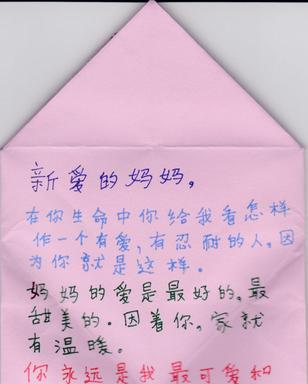 新爱的妈妈。
在你生命中你给我看怎样
作一个有爱，有忍耐的人。因
为你就是这样。
妈妈的爱是最好的。最
甜美的．因着你，家就
有温暖。
你永远是我最可爱和